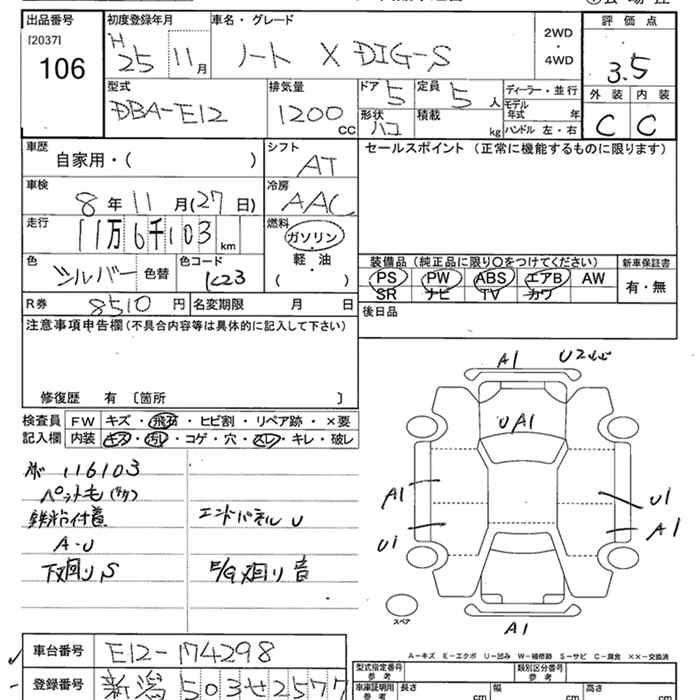 出品番号 初度登録年月 車名・グレード 2WD ・ 4WD 評価点
[2037] 106 H25 11月 ノート X DIG-S 3.5
型式 排気量 ドア 5 定員 5人 ディーラー・並行 外装 内装
DBA-E12 1200cc 形状 ハコ 積載 kg モデル年式 年 C C
ハンドル 左・右
車歴 自家用・( ) シフト AT セールスポイント (正常に機能するものに限ります)
車検 8年11月(27日) 冷房 AAC
走行 11万6千103km 燃料 ガソリン ・ 軽油 ・ ( )
色 シルバー 色替 色コード K23
装備品(純正品に限り○をつけてください) 新車保証書
PS PW ABS エアB AW 有・無
SR ナビ TV カワ
R券 8510円 名変期限 月 日 後日品
注意事項申告欄(不具合内容等は具体的に記入して下さい)
修復歴 有 [箇所 ]
検査員 FW キズ・飛石・ヒビ割・リペア跡・×要
記入欄 内装 キズ・汚れ・コゲ・穴・スレ・キレ・破レ
116103
ペット毛
付着 エンドパネル U
A-U
下廻りS E/G廻り音
A1 U2
UA1
A1 U1
U1 A1
スペア
A1
A-キズ E-エクボ U-凹み W-補修跡 S-サビ C-腐食 ××-交換済
車台番号 E12-174298
登録番号 新潟 503 せ 2577
型式指定番号 参考 類別区分番号 参考
車庫証明用 参考 長さ cm 幅 cm 高さ cm